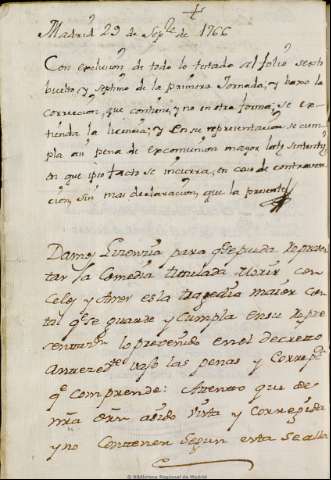 Madrid 29 de Sep.re de 1766
Con exclusion de todo lo testado al folio sexto
buelto, y septimo de la primera Jornada, y baxo la
correccion, que contiene, y no en otra forma; se ex-
tienda la licencia; y en su representacion se cum-
pla su pena de excomunion mayor latę sententię
en que ipso facto se incurria, en caso de contraven-
cion, sin mas declaracion, que la presente
Damos Licenzia para q.e se pueda Represen-
tar la Comedia titulada Morir con
Celos y Amor es la tragedia maior con
tal q.e se guarde y Cumpla en su Repre
sentaz.n lo prevenido en el decreto
Antezed.te vajo las penas y
q.e Comprende: Atento que de
nr̃a orñ a sido Vista y corregida
y no Contener Segun esta
© Biblioteca Regional de Madrid